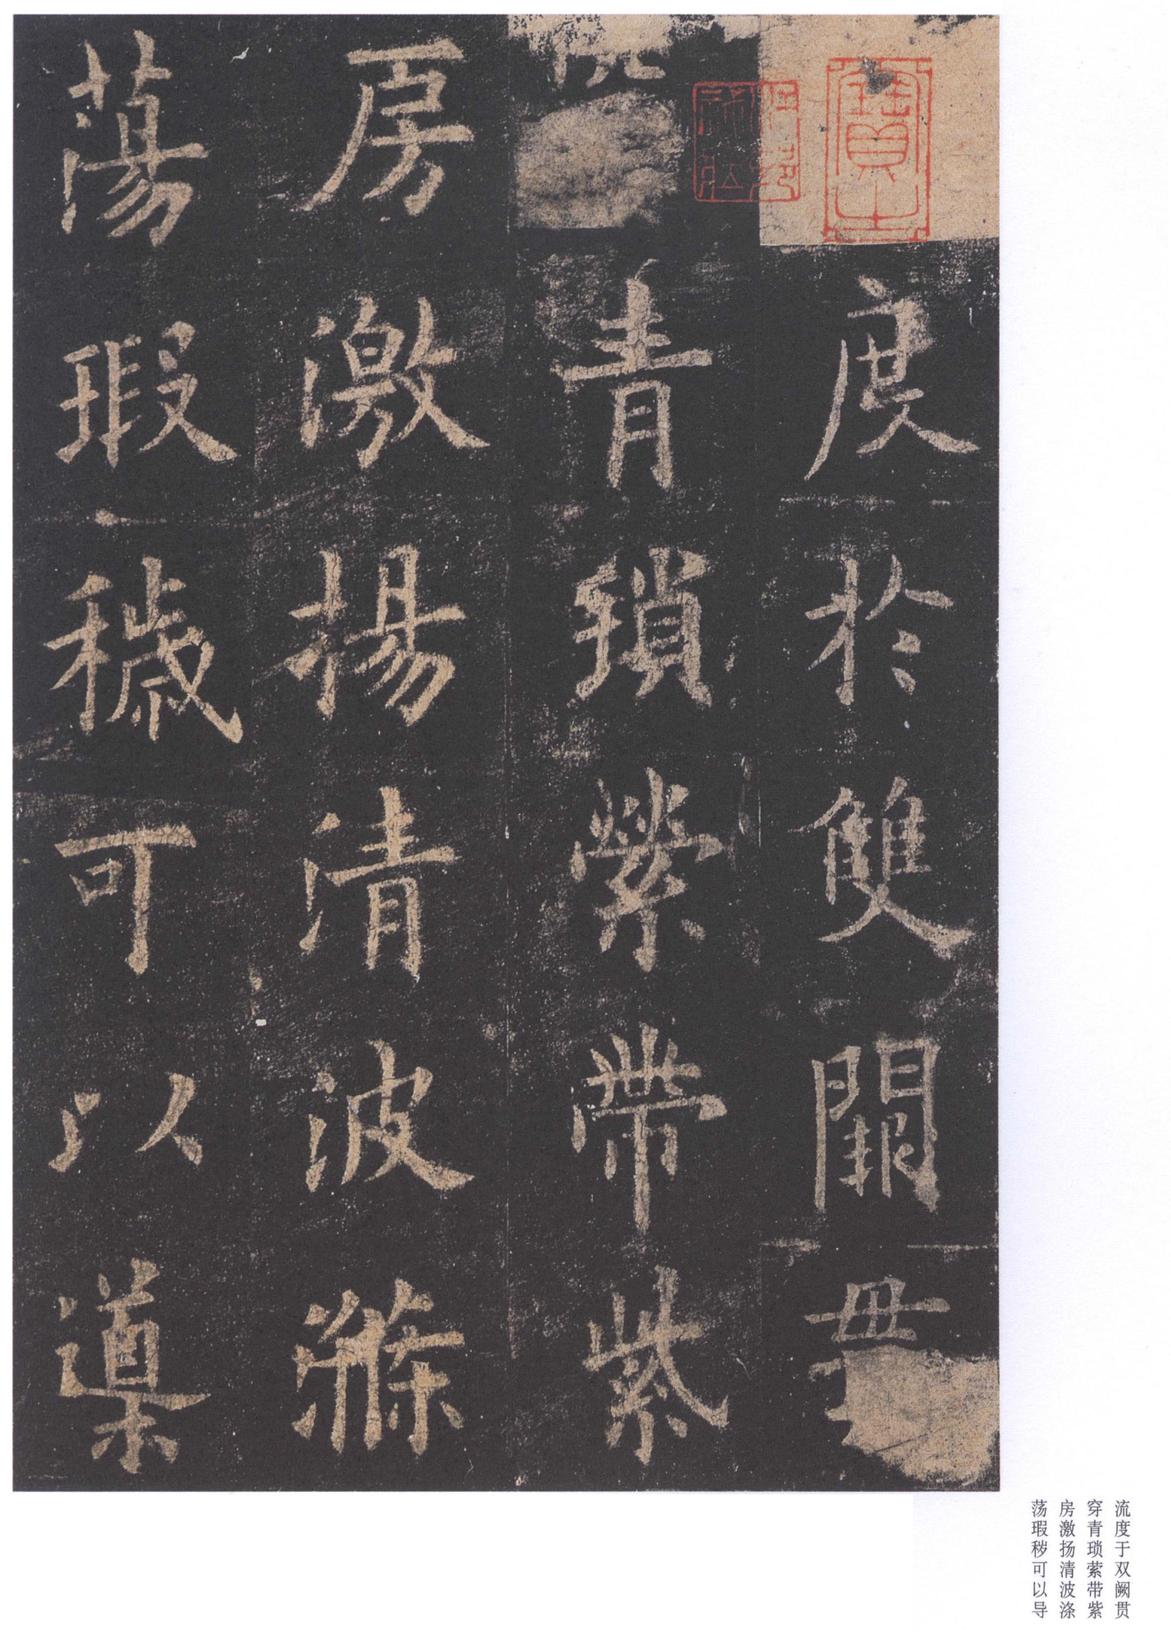 度於雙闕貫
青瑣縈帶紫
房激揚清波滌
蕩瑕穢可以導
流度于双阙贯
穿青琐萦带紫
房激扬清波涤
荡瑕秽可以导